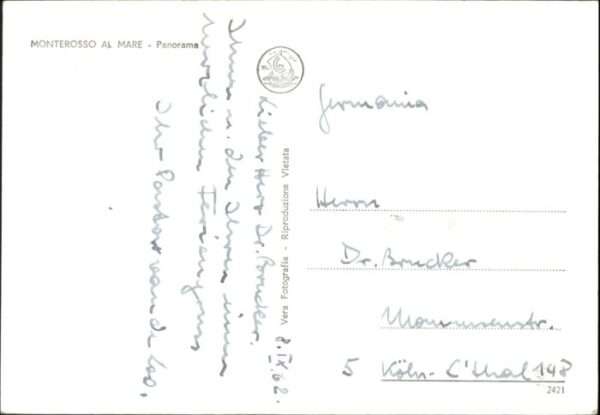 MONTEROSSO AL MARE - Panorama
8.IX.62.
Lieber Herr Dr. Brucker.
Ihnen u. den Ihren einen
herzlichen Feriengruss
Ihr Pastor van de Loo.
Vera Fotografia - Riproduzione Vietata
Germania
Herrn
Dr. Brucker
5 Köln-L'thal 148
2421